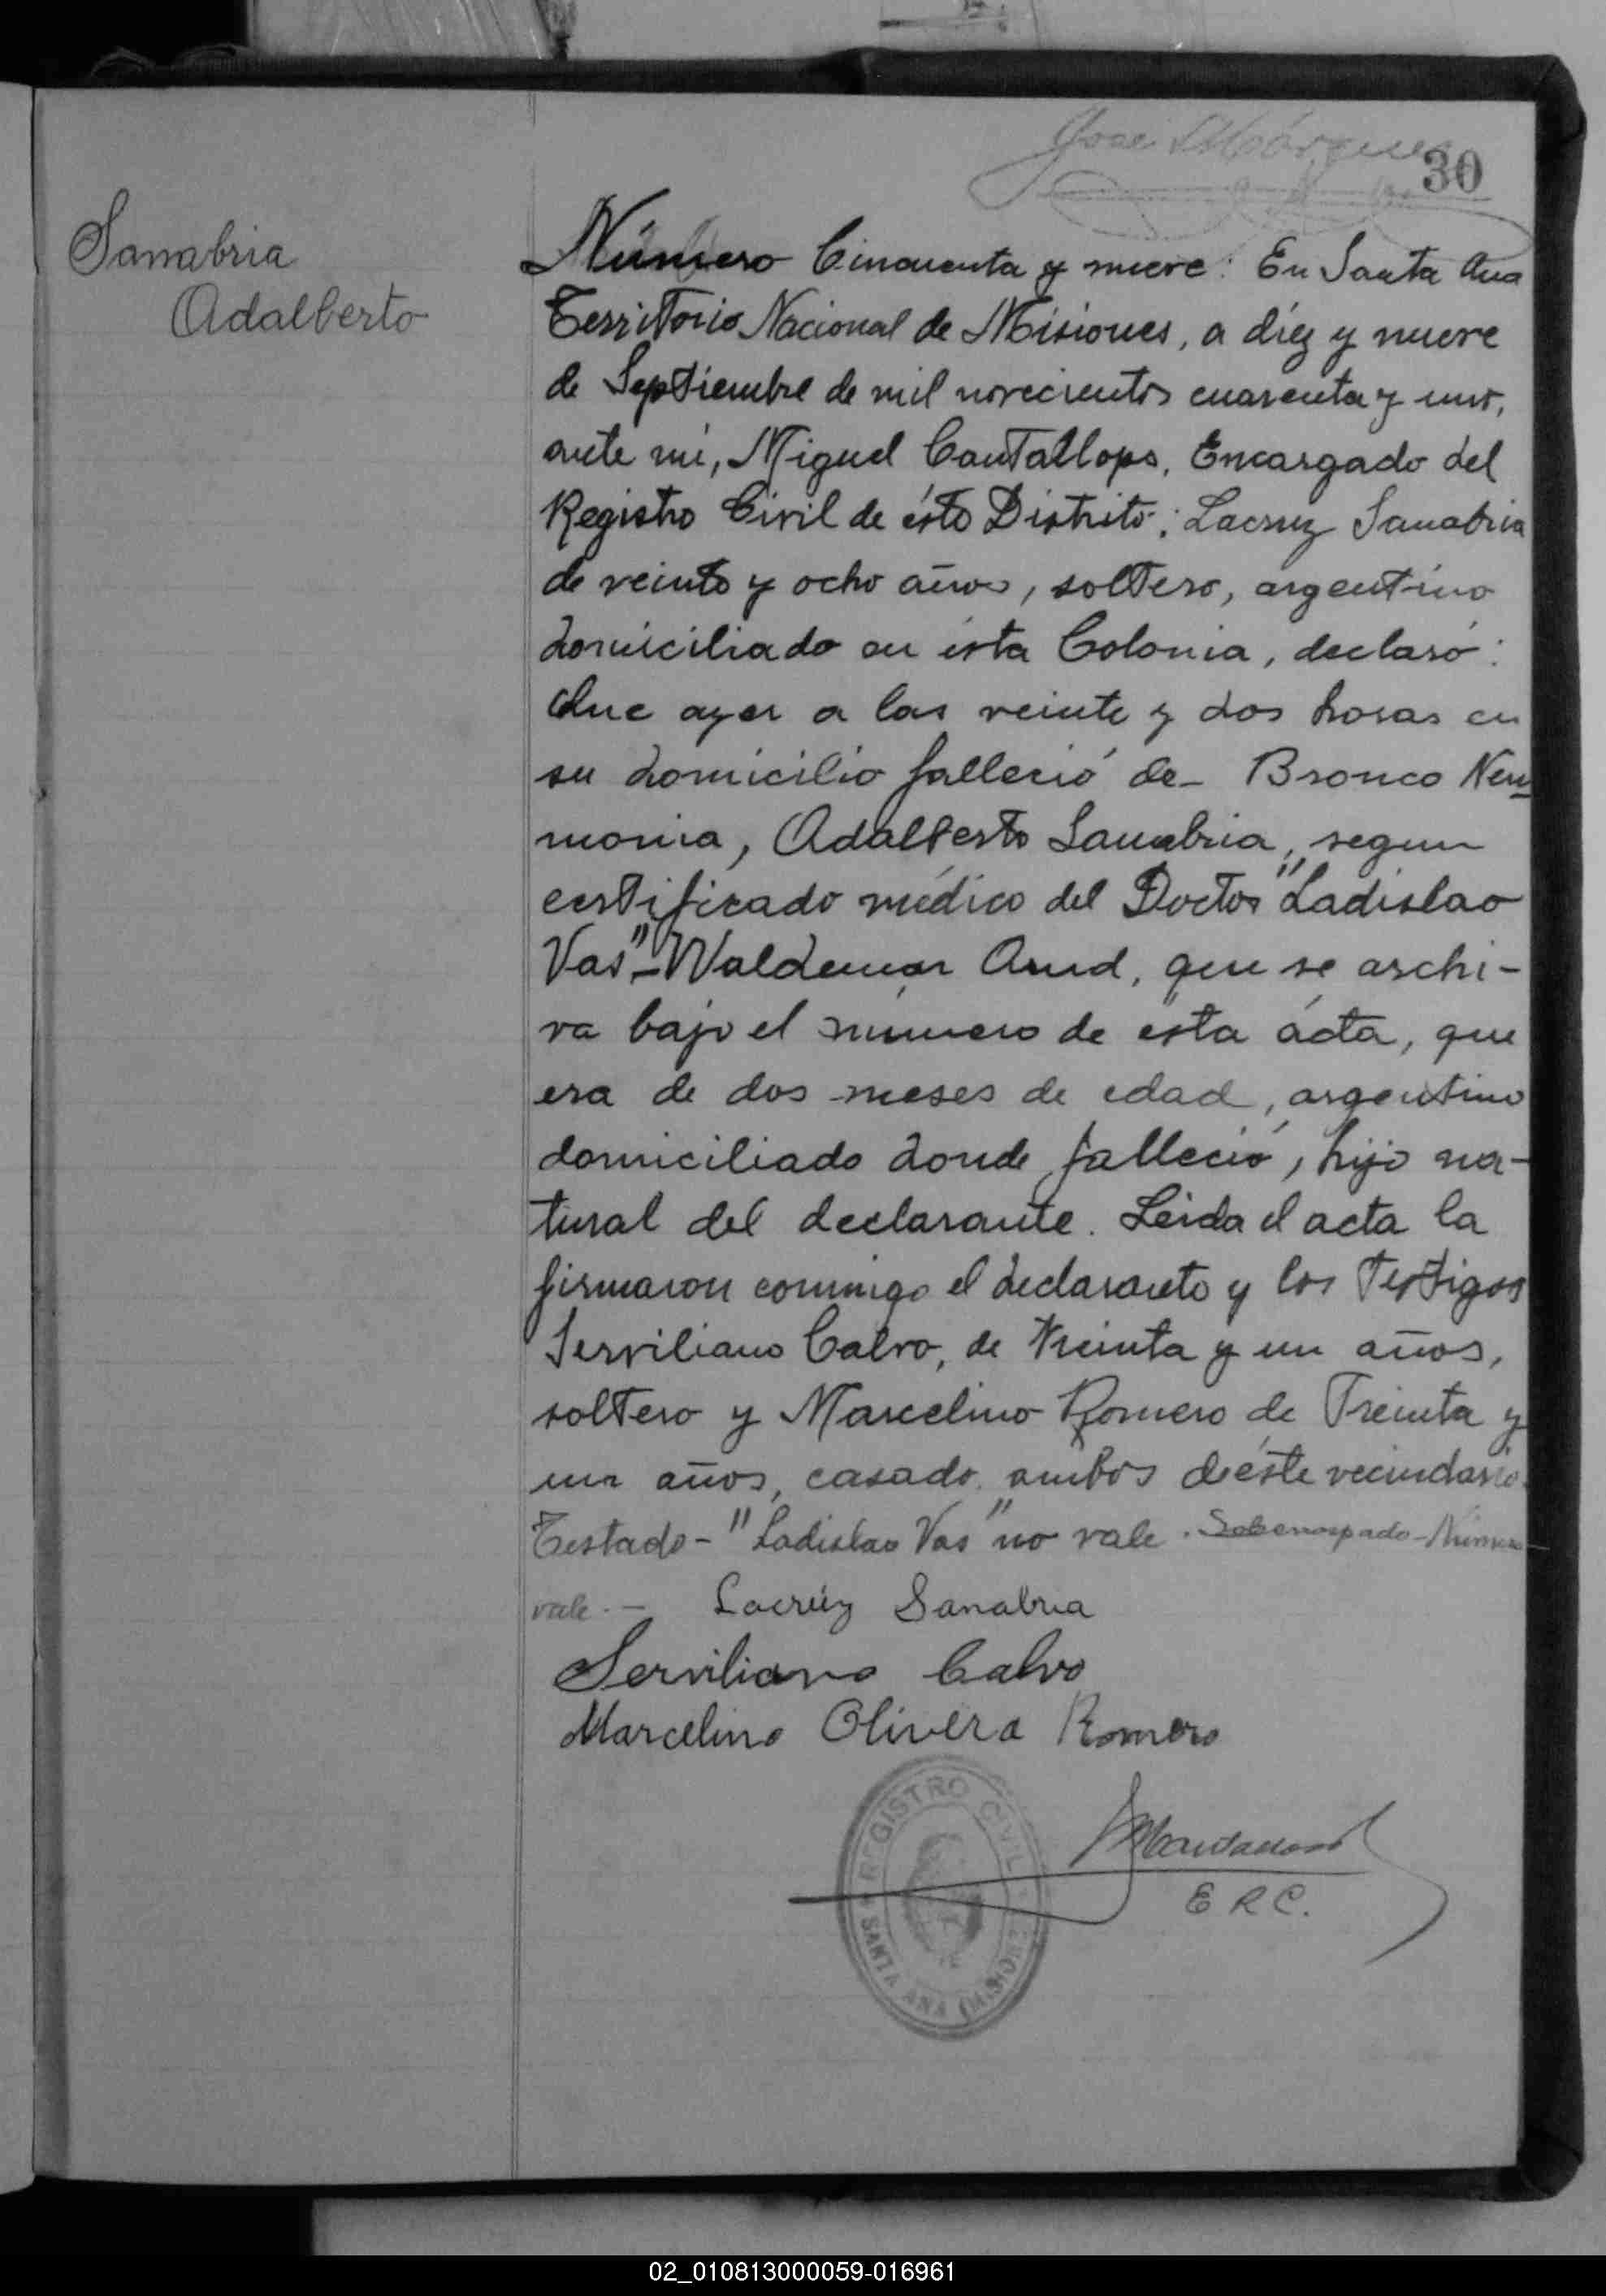 Jose Márquez
30
Sanabria
Adalberto
Número Cincuenta y nueve: En Santa Ana
Territorio Nacional de Misiones, a diez y nueve
de Septiembre de mil novecientos cuarenta y uno,
ante mí, Miguel Cantallops, Encargado del
Registro Civil de éste Distrito: Lacruz Sanabria
de veinte y ocho años, soltero, argentino
domiciliado en ésta Colonia, declaró:
Que ayer a las veinte y dos horas en
su domicilio falleció de- Bronco Neu-
monia, Adalberto Sanabria, segun
certificado médico del Doctor "Ladislao
Vas"-Waldemar Arnd, que se archi-
va bajo el número de ésta ácta, que
era de dos meses de edad, argentino
domiciliado donde falleció, hijo na-
tural del declarante. Leida el acta la
firmaron conmigo el declarante y los Testigos
Serviliano Calvo, de treinta y un años,
soltero y Marcelino Romero de Treinta y
un años, casado, ambos de éste vecindario.
Testado- "Ladislao Vas" no vale. Sobrerraspado-Número-
vale.- Lacrúz Sanabria
Serviliano Calvo
Marcelino Olivera Romero
REGISTRO CIVIL
SANTA ANA (MISIONES)
E R C.
02_010813000059-016961